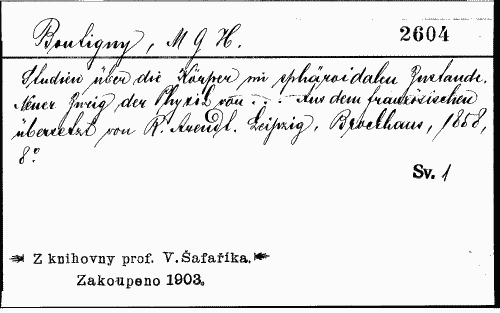 Boutigny, M G H. 2604
Studien über die Körper im sphäroidalen Zustande.
Neuer Zweig der Physik von . . . Aus dem französischen
übersetzt von R. Arendt. Leipzig, Brockhaus, 1858,
8°
Sv. 1
Z knihovny prof. V. Šafaříka.
Zakoupeno 1903.